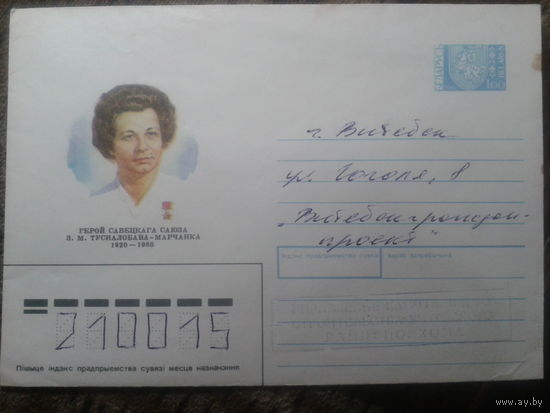 БЕЛАРУСЬ
г. Витебск
ул. Гоголя, 8
"Витебскграждан-
проект"
ГЕРОЙ САВЕЦКАГА САЮЗА
З. М. ТУСНАЛОБАВА-МАРЧАНКА
1920—1980
Індэкс прадпрыемства сувязі
адрас адпраўшчыка
210015
Пішыце індэкс прадпрыемства сувязі месца назначэння
www.ay.by